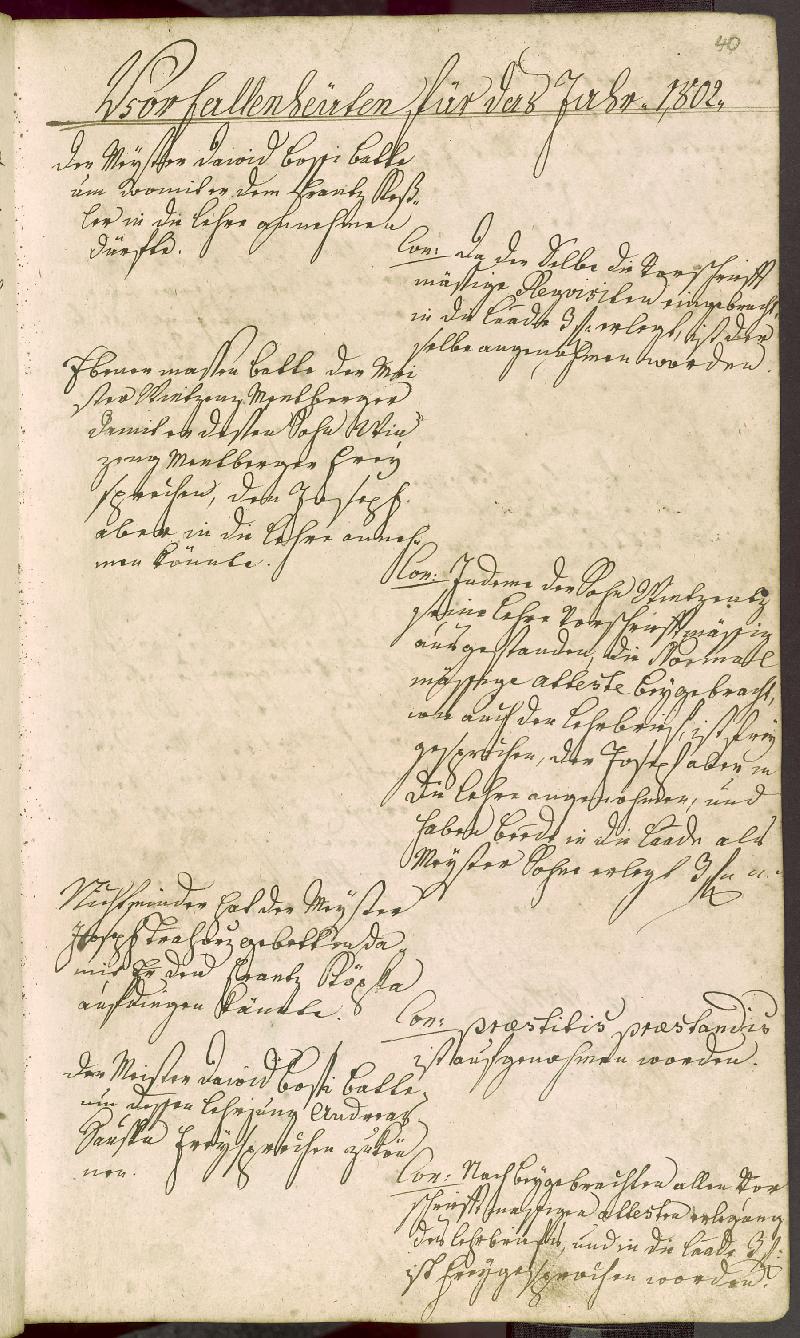 40
Vorfallenheiten für das Jahr 1802.
Der Meyster David Bossi batte
um womit er dem Frantz Keß-
ler in die Lehre annehmen
dürfte.
Con: Da der Selbe die Vorschrifft
mässige Requisiten eingebracht,
in die Laade 3 f: erlegt, ist der
selbe angenohmen worden.
Ebener massen batte der Mei
ster Vintzenz Mentberger
damit er dessen Sohn Win
zenz Mentberger Frey
sprechen, den Joseph
aber in die Lehre anneh
men könnte.
Con: Indeme der Sohn Vintzentz
seine Lehre Vorschrifftmässig
ausgestanden, die Normal
mässege atteste beygebracht,
wie auch den Lehrbrief, ist Frey
gesprochen, der Joseph aber in
die Lehre angenohmen, und
haben beede in die Laade als
Meyster Sohne erlegt 3 f
Nicht minder hat der Meyster
Joseph gebetten da
mit Er den Frantz Köpka
aufdingen könnte.
Con: præstitis præstandis
ist aufgenohmen worden.
Der Meister David Bossi batte
um dessen Lehrjung Andreas
Hauska Freysprechen zu kön
nen.
Con: Nach beygebrachten allen Vor
schrifftmassigen attesten erlegung
des Lehrbriefs, und in die Laade 3 f:
ist Freygesprochen worden.